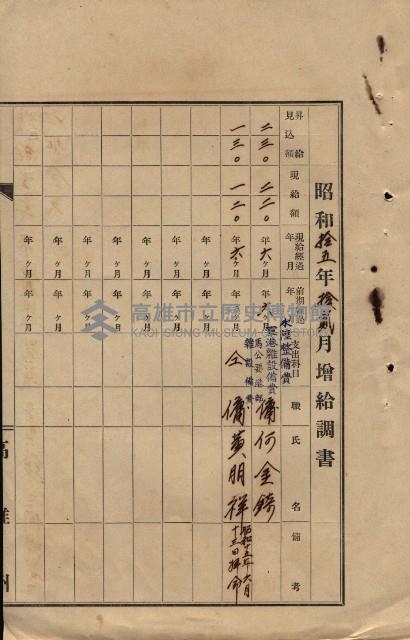 昭和拾五年拾貳月增給調書
昇給見込額 現給額 現給經過年月 前期經過年月 支出科目 職 氏名 備考
二三〇 二二〇 年六ヶ月 年 ヶ月 水陸整備費 要港雜設備費 傭 何金鐃
一三〇 一二〇 年六ヶ月 年 ヶ月 馬公要港部雜設備費 仝 傭 黃朋祥 昭和十五年六月十三日拜命
年 ヶ月 年 ヶ月
年 ヶ月 年 ヶ月
年 ヶ月 年 ヶ月
年 ヶ月 年 ヶ月
年 ヶ月 年 ヶ月
年 ヶ月 年 ヶ月
年 ヶ月 年 ヶ月
高雄州
高雄市立歷史博物館
KAOHSIUNG MUSEUM OF HISTORY